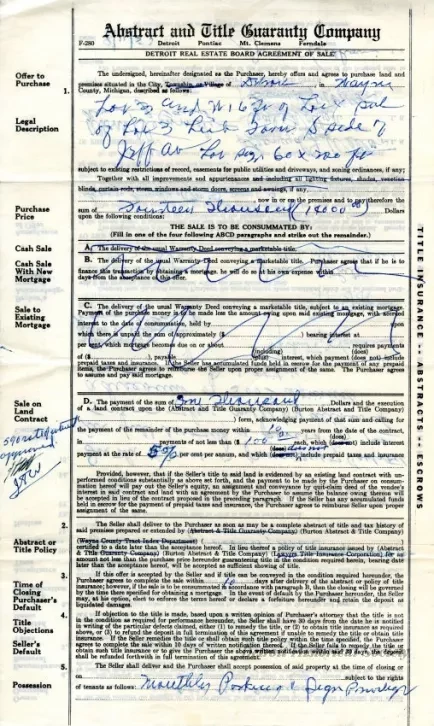 Abstract and Title Guaranty Company
F-280 Detroit Pontiac Mt. Clemens Ferndale
DETROIT REAL ESTATE BOARD AGREEMENT OF SALE
Offer to Purchase
1.
The undersigned, hereinafter designated as the Purchaser, hereby offers and agrees to purchase land and
premises situated in the City, Township or Village of Detroit in Wayne
County, Michigan, described as follows:
Legal Description
Jeff Av Lot 60 x 200
subject to existing restrictions of record, easements for public utilities and driveways, and zoning ordinances, if any;
Together with all improvements and appurtenances and including all lighting fixtures, shades, venetian
blinds, curtain rods, storm windows and storm doors, screens and awnings, if any,
now in or on the premises and to pay therefore the
Purchase Price
sum of Fourteen Thousand (14000 00) Dollars
upon the following conditions:
THE SALE IS TO BE CONSUMMATED BY:
(Fill in one of the four following ABCD paragraphs and strike out the remainder.)
Cash Sale
A. The delivery of the usual Warranty Deed conveying a marketable title.
Cash Sale With New Mortgage
B. The delivery of the usual Warranty Deed conveying a marketable title. Purchaser agrees that if he is to
finance this transaction by obtaining a mortgage, he will do so at his own expense within
days from the acceptance of this offer.
Sale to Existing Mortgage
C. The delivery of the usual Warranty Deed conveying a marketable title, subject to an existing mortgage.
Payment of the purchase money to be made less the amount owing upon said existing mortgage, with accrued
interest to the date of consummation, held by upon
which there is unpaid the sum of approximately ($ ) bearing interest at
per cent, which mortgage becomes due on or about requires payments
of ($ ), payable (including) (plus) interest, which payment (does) (does not) include
prepaid taxes and insurance. If the Seller has accumulated funds held in escrow for the payment of any prepaid
items, the Purchaser agrees to reimburse the Seller upon proper assignment of the same. The Purchaser agrees
to assume and pay said mortgage.
Sale on Land Contract
D. The payment of the sum of Thousand Dollars and the execution
of a land contract upon the (Abstract and Title Guaranty Company) (Burton Abstract and Title Company)
form, acknowledging payment of that sum and calling for
the payment of the remainder of the purchase money within 10 years from the date of contract,
in payments of not less than $ 100 each, which (does) (does not) include interest
payment at the rate of 5% per cent per annum, and which (does) (does not) include prepaid taxes and insurance
Provided, however, that if the Seller's title to said land is evidenced by an existing land contract with un-
performed conditions substantially as above set forth, and the payment to be made by the Purchaser on consum-
mation hereof will pay out the Seller's equity, an assignment and conveyance by quit-claim deed of the vendee's
interest in said contract and land with an agreement by the Purchaser to assume the balance owing thereon will
be accepted in lieu of the contract proposed in the preceding paragraph. If the Seller has any accumulated funds
held in escrow for payment of taxes and insurance, the Purchaser agrees to reimburse Seller upon proper
assignment of the same.
2.
The Seller shall deliver to the Purchaser as soon as may be a complete abstract of title and tax history of
said premises prepared or extended by (Abstract & Title Guaranty Company) (Burton Abstract & Title Company)
Abstract or Title Policy
(Wayne County Tract Index Department)
certified to a date later than the acceptance hereof. In lieu thereof a policy of title insurance issued by (Abstract
& Title Guaranty Company) (Burton Abstract & Title Company) (Lawyers Title Insurance Corporation) for an
amount not less than the purchase price hereunder and guaranteeing title in the condition required herein, bearing date
later than the acceptance hereof, will be accepted as sufficient showing of title.
3.
Time of Closing
Purchaser's Default
If this offer is accepted by the Seller and if title can be conveyed in the condition required hereunder, the
Purchaser agrees to complete the sale within days after delivery of the abstract or policy of title
insurance; however, if the sale is to be consummated in accordance with paragraph B, then the closing will be governed
by the time there specified for obtaining a mortgage. In the event of default by the Purchaser hereunder, the Seller
may, at his option, elect to enforce the terms hereof or declare a forfeiture hereunder and retain the deposit as
liquidated damages.
4.
Title Objections
Seller's Default
If objection to the title is made, based upon a written opinion of Purchaser's attorney that the title is not
in the condition as required for performance hereunder, the Seller shall have 30 days from the date he is notified
in writing of the particular defects claimed, either (1) to remedy the title, or (2) to obtain title insurance as required
above, or (3) to refund the deposit in full termination of this agreement if unable to remedy the title or obtain title
insurance. If the Seller remedies the title or shall obtain such title policy within the time specified, the Purchaser
agrees to complete the sale within 10 days of written notification thereof. If the Seller fails to remedy the title or
obtain such title insurance or to give the Purchaser the above written notification within said 30 days, the deposit
shall be refunded forthwith in full termination of this agreement.
5.
Possession
The Seller shall deliver and the Purchaser shall accept possession of said property at the time of closing or
on subject to the rights
of tenants as follows: Monthly Parking & Sign Privilege
TITLE INSURANCE -- ABSTRACTS -- ESCROWS